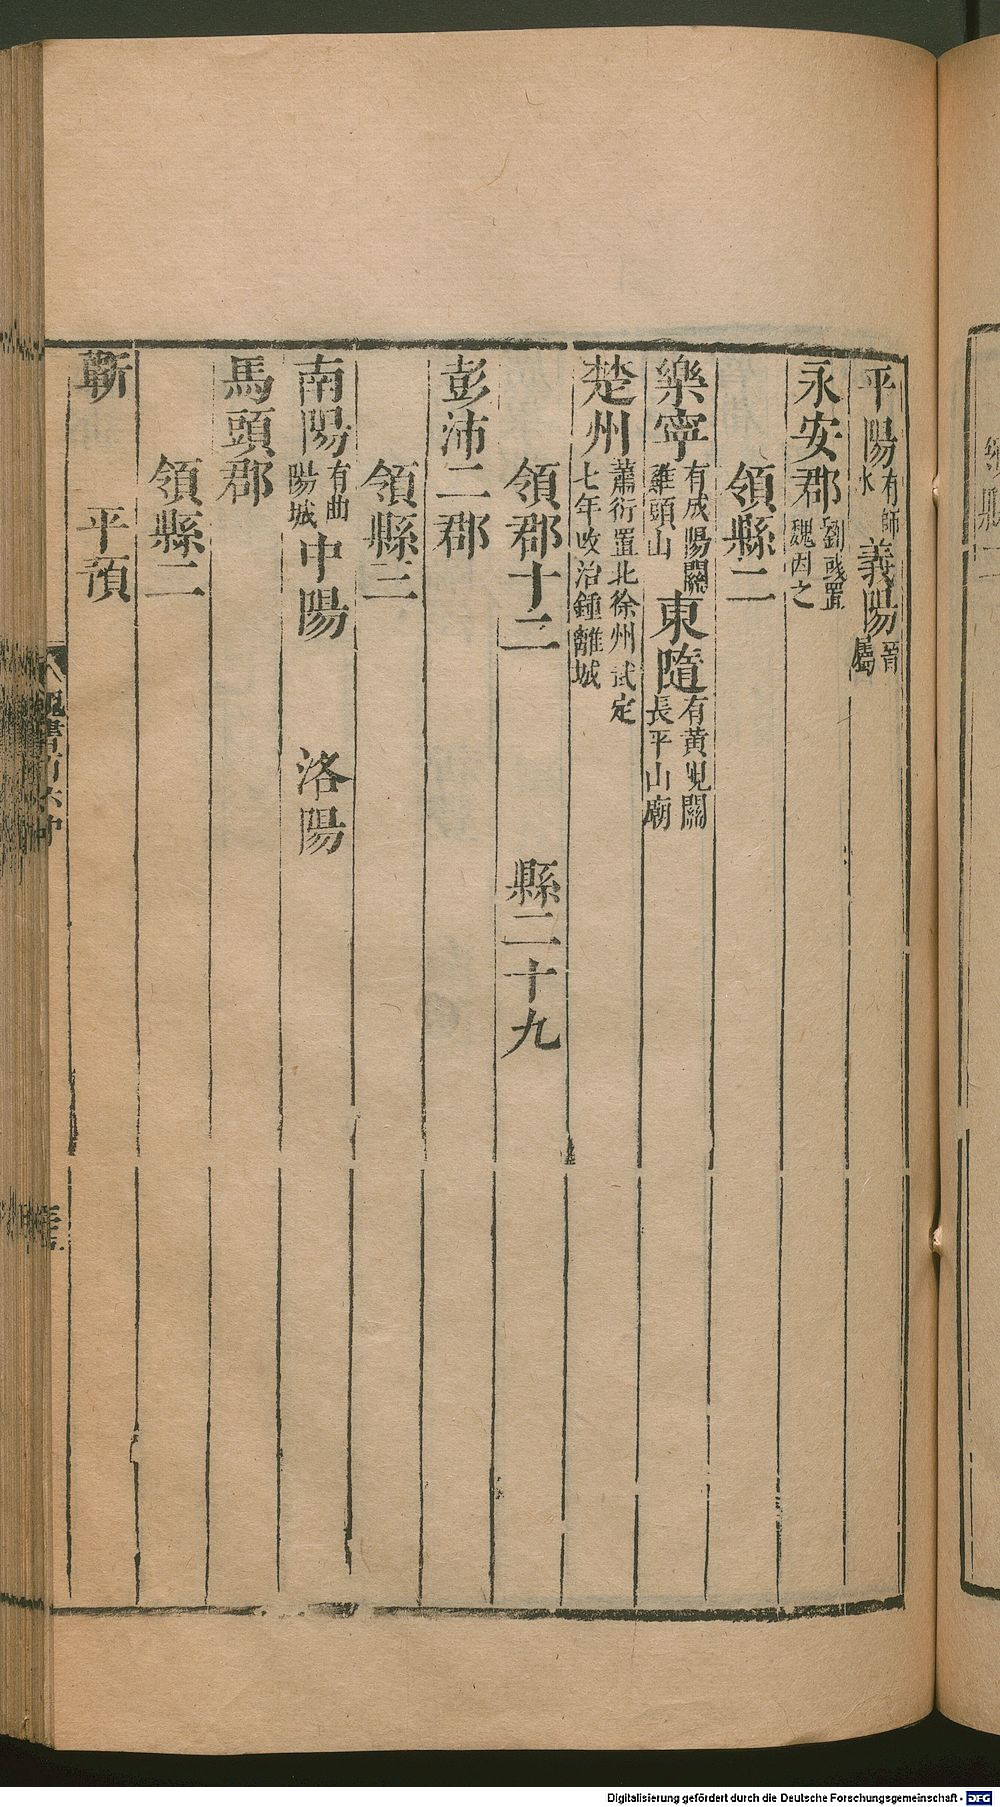 平陽有師水義陽晉屬
永安郡劉彧置魏因之
領縣二
樂寧有成陽關雞頭山東隨有黃峴關長平山廟
楚州蕭衍置北徐州武定七年改治鍾離城
領郡十二 縣二十九
彭沛二郡
領縣三
南陽有曲陽城中陽 洛陽
馬頭郡
領縣二
蘄 平預
魏書百六中
Digitalisierung gefördert durch die Deutsche Forschungsgemeinschaft - DFG